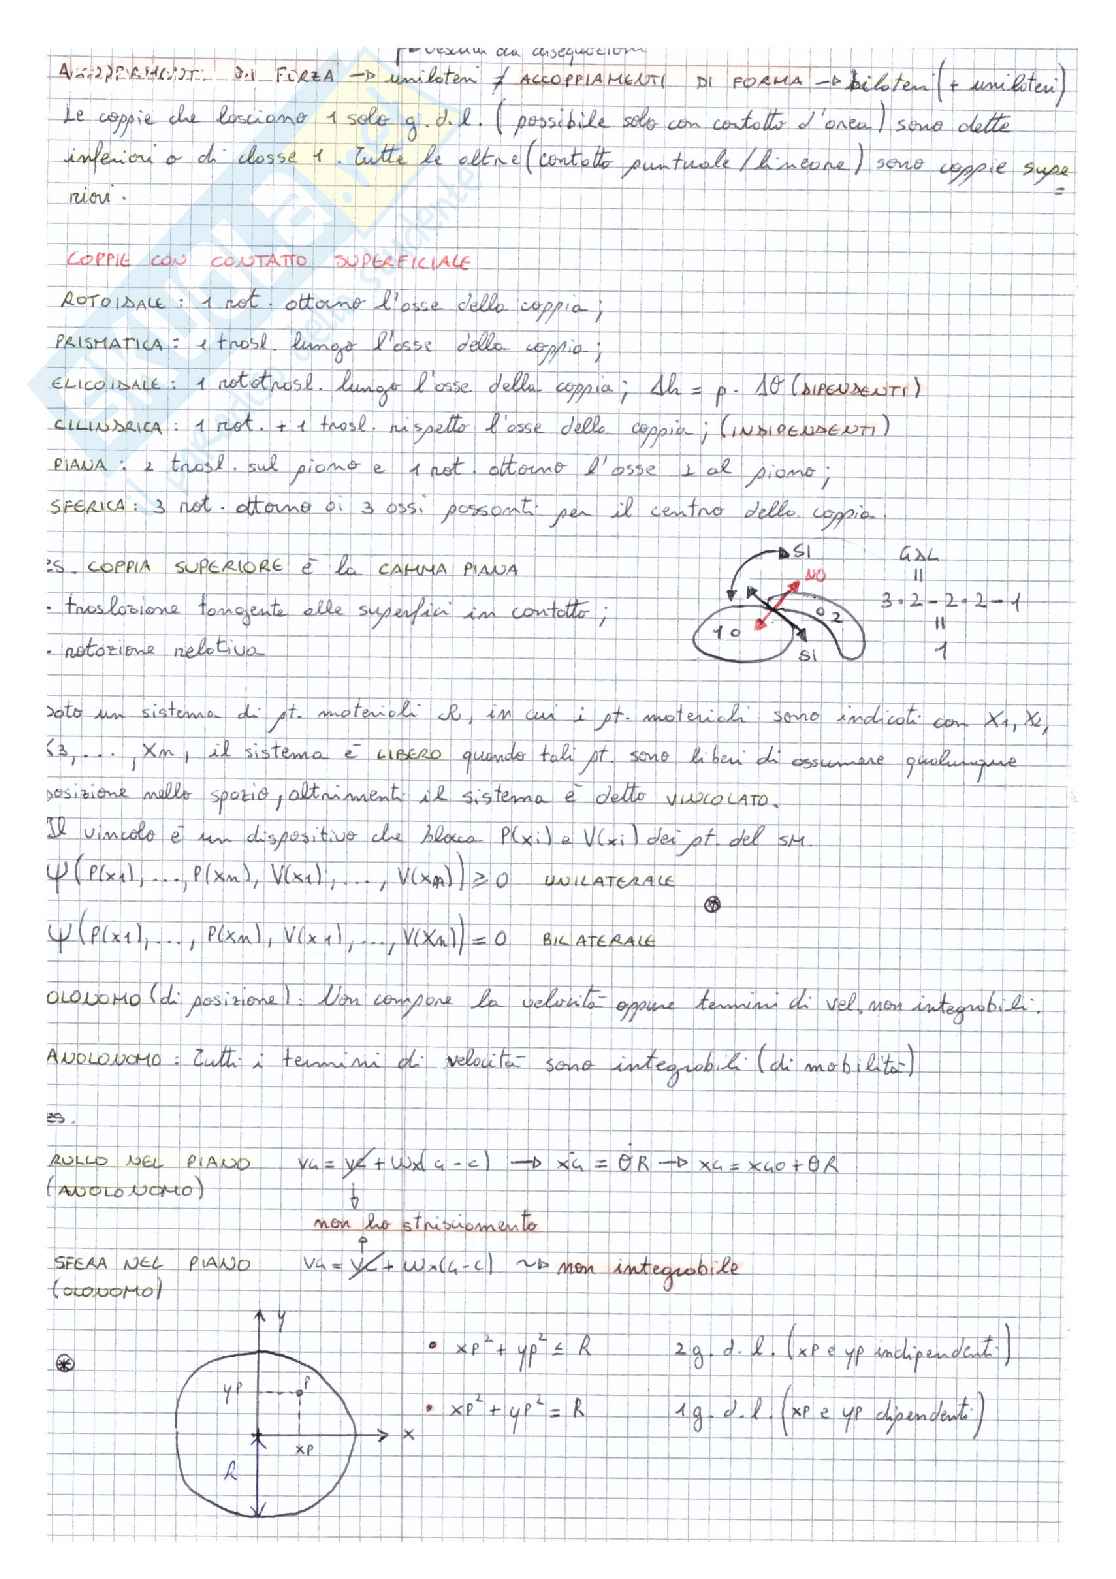 descritti da disequazioni
ACCOPPIAMENTI DI FORZA → unilateri ≠ ACCOPPIAMENTI DI FORMA → bilateri (+ unilateri)
Le coppie che lasciano 1 solo g.d.l. (possibile solo con contatto d'area) sono dette
inferiori o di classe 1. Tutte le altre (contatto puntuale/lineare) sono coppie supe=
riori.
COPPIE CON CONTATTO SUPERFICIALE
ROTOIDALE: 1 rot. attorno l'asse della coppia;
PRISMATICA: 1 trasl. lungo l'asse della coppia;
ELICOIDALE: 1 rototrasl. lungo l'asse della coppia; Δh = p · Δθ (DIPENDENTI)
CILINDRICA: 1 rot. + 1 trasl. rispetto l'asse della coppia; (INDIPENDENTI)
PIANA: 2 trasl. sul piano e 1 rot. attorno l'asse ⊥ al piano;
SFERICA: 3 rot. attorno ai 3 assi passanti per il centro della coppia.
es. COPPIA SUPERIORE è la CAMMA PIANA
· traslazione tangente alle superfici in contatto;
· rotazione relativa
SI
NO
1
2
SI
GDL
=
3·2-2·2-1
=
1
Dato un sistema di pt. materiali R, in cui i pt. materiali sono indicati con X1, X2,
X3, ..., Xn, il sistema è LIBERO quando tali pt. sono liberi di assumere qualunque
posizione nello spazio, altrimenti il sistema è detto VINCOLATO.
Il vincolo è un dispositivo che blocca P(xi) e V(xi) dei pt. del SM.
Ψ(P(x1), ..., P(xn), V(x1), ..., V(xn)) ≥ 0 UNILATERALE
⊛
Ψ(P(x1), ..., P(xn), V(x1), ..., V(Xn)) = 0 BILATERALE
OLONOMO (di posizione): Non compare la velocità oppure termini di vel. non integrabili.
ANOLONOMO: Tutti i termini di velocità sono integrabili (di mobilità)
es.
RULLO NEL PIANO vG = vC + ωx(G-C) → ẋG = θ̇R → xG = xG0 + θR
(ANOLONOMO)
non ho strisciamento
SFERA NEL PIANO vG = vC + ωx(G-C) ⇝ non integrabile
(OLONOMO)
y
⊛
yP
P
x
xP
R
• xP² + yP² ≤ R 2 g.d.l. (xP e yP indipendenti)
• xP² + yP² = R 1 g.d.l. (xP e yP dipendenti)